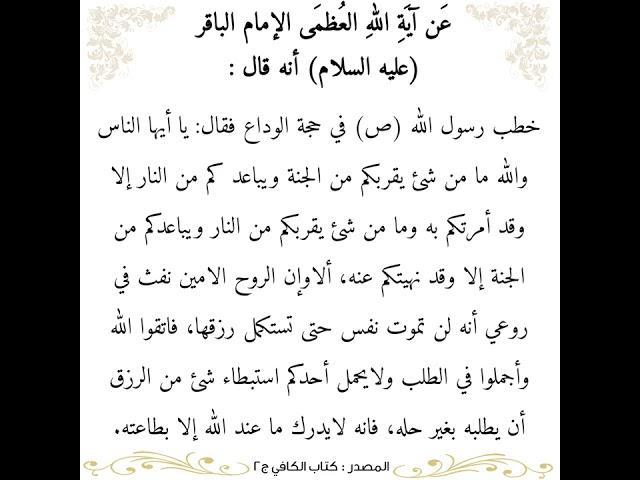 عَن آيَةِ اللهِ العُظمَى الإمام الباقر
(عليه السلام) أنه قال :
خطب رسول الله (ص) في حجة الوداع فقال: يا أيها الناس
والله ما من شئ يقربكم من الجنة ويباعد كم من النار إلا
وقد أمرتكم به وما من شئ يقربكم من النار ويباعدكم من
الجنة إلا وقد نهيتكم عنه، ألاوإن الروح الامين نفث في
روعي أنه لن تموت نفس حتى تستكمل رزقها، فاتقوا الله
وأجملوا في الطلب ولايحمل أحدكم استبطاء شئ من الرزق
أن يطلبه بغير حله، فانه لايدرك ما عند الله إلا بطاعته.
المصدر : كتاب الكافي ج٢